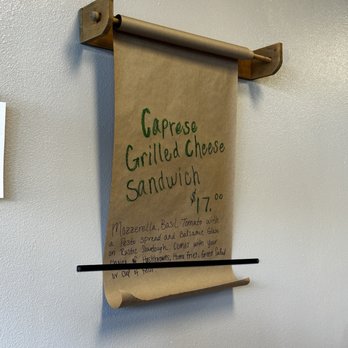 Caprese
Grilled Cheese
Sandwich
$17.00
Mozzerella, Basil, Tomato with
a Pesto spread and Balsamic Glaze
on Rustic Sourdough. Comes with your
choice of Hashbrowns, Home Fries, Green Salad
or Cup of